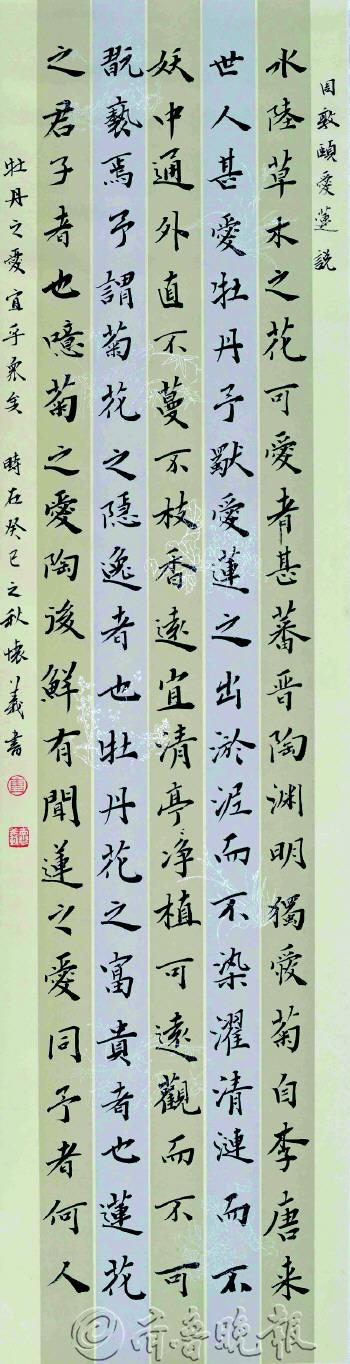 周敦頤愛蓮說
水陸草木之花可愛者甚蕃晋陶渊明獨愛菊自李唐来
世人甚愛牡丹予獨愛蓮之出淤泥而不染濯清漣而不
妖中通外直不蔓不枝香遠宜清亭々净植可遠觀而不可
翫褻焉予謂菊花之隱逸者也牡丹花之富貴者也蓮花
之君子者也噫菊之愛陶後鮮有聞蓮之愛同予者何人
牡丹之愛宜乎衆矣 時在癸巳之秋懷義書
©齊魯晚報